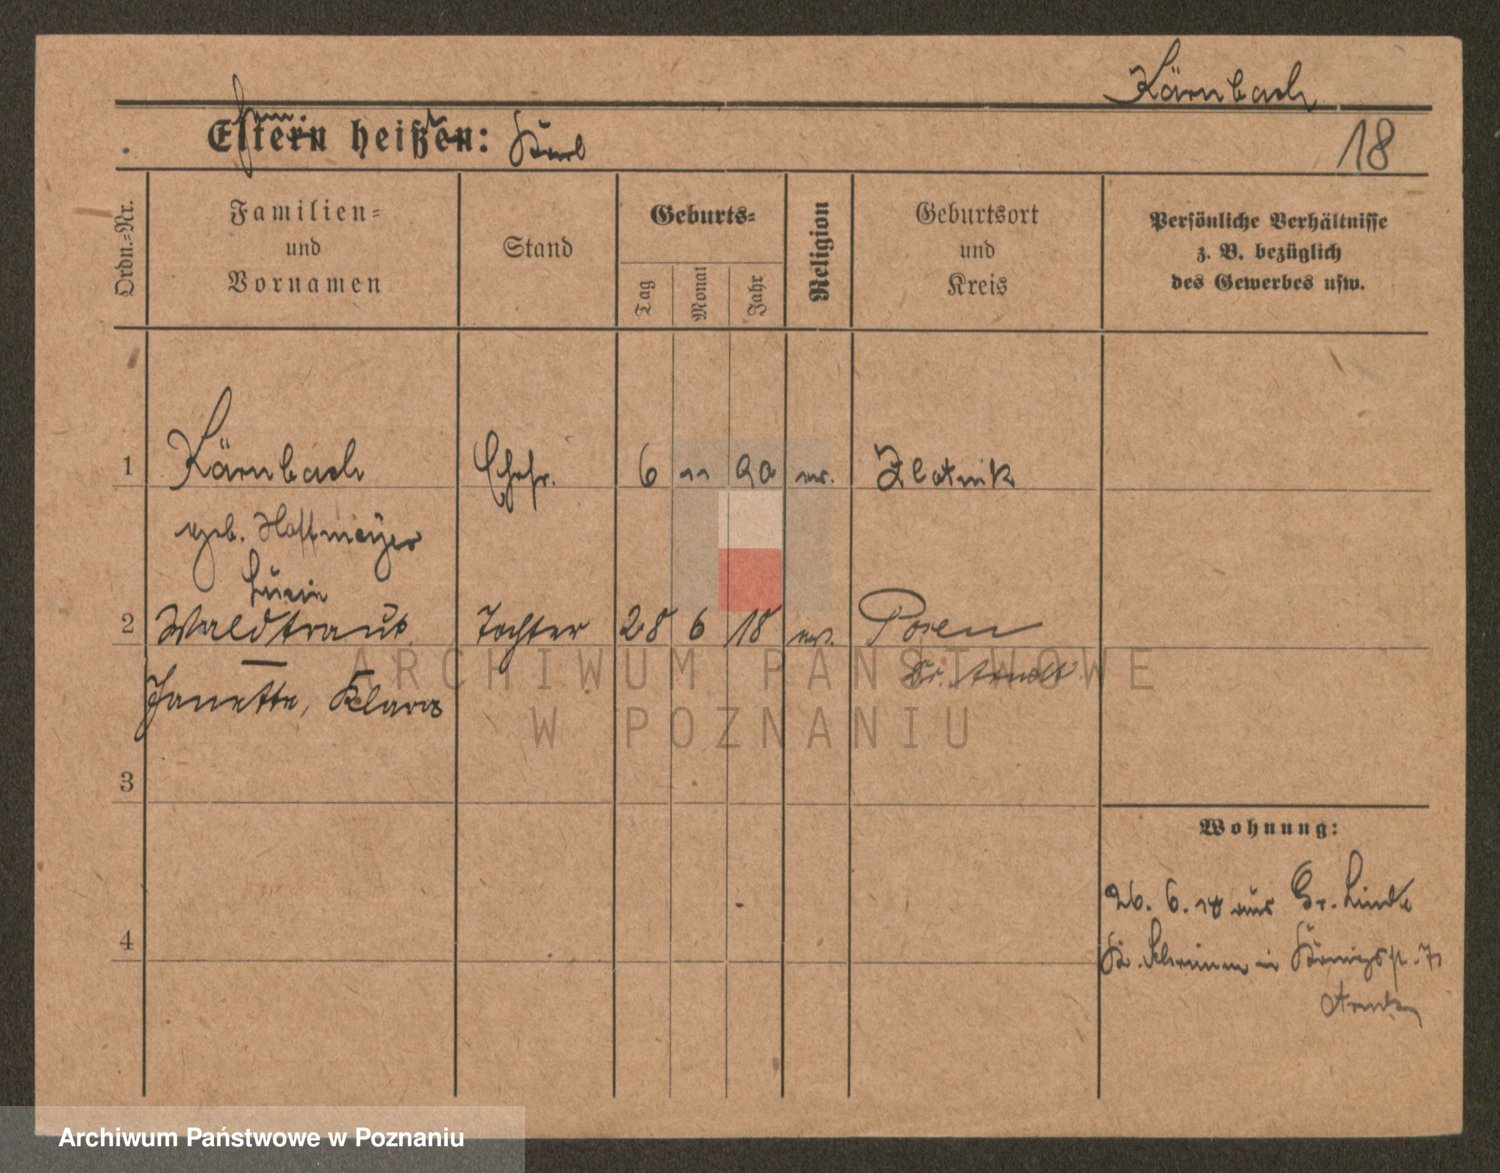 Kärnbach
Eltern heißen: Karl
18
Ordn.-Nr.
Familien-
und
Vornamen
Stand
Geburts-
Tag
Monat
Jahr
Religion
Geburtsort
und
Kreis
Persönliche Verhältnisse
z. B. bezüglich
des Gewerbes usw.
1 Kärnbach Ehefr. 6 11 90 ev. Zlotnik
geb. Hoffmeyer
Luzie
2 Waldtraut Tochter 28 6 18 ev. Posen
Janette, Klara
3
Wohnung:
26. 6. 18 aus Gr. Linde
4
Kr. Schrimm in Königspl.
ARCHIWUM PAŃSTWOWE
W POZNANIU
Archiwum Państwowe w Poznaniu